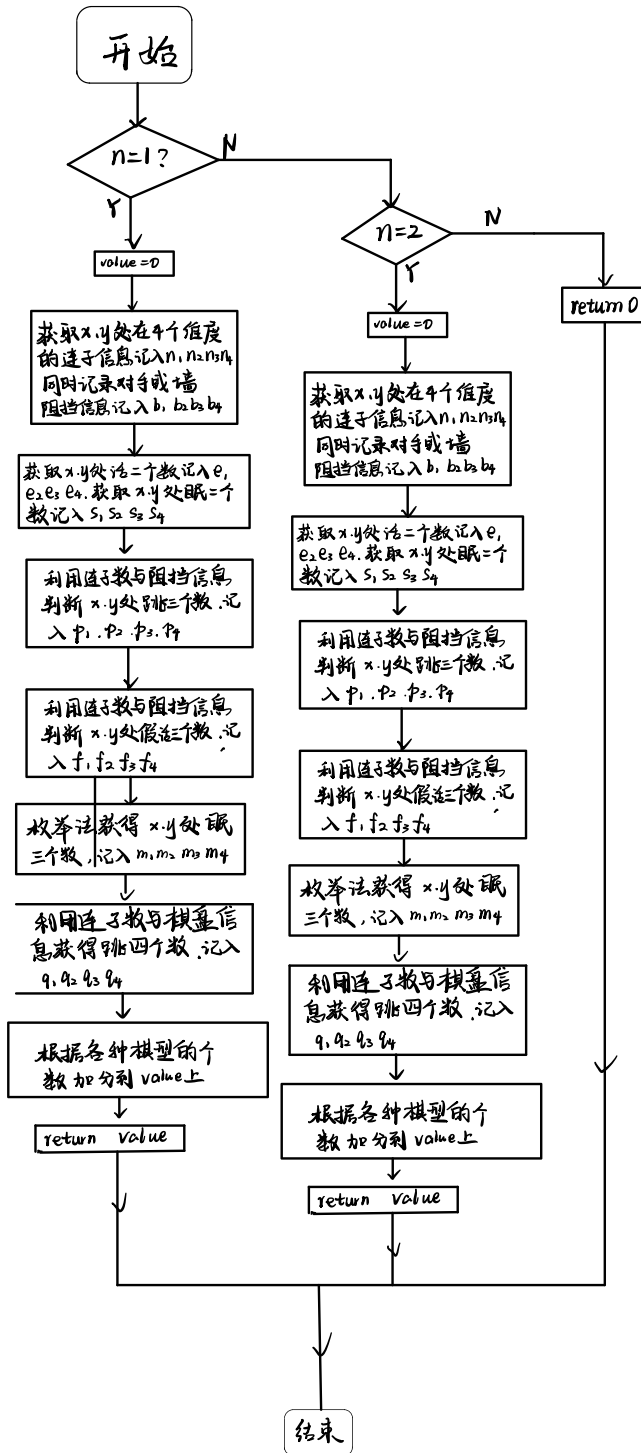 开始
n=1?
N
Y
n=2
N
Y
value=0
获取x.y处在4个维度
的连子信息记入n₁n₂n₃n₄
同时记录对手或墙
阻挡信息记入b₁b₂b₃b₄
获取x.y处活二个数记入e₁
e₂e₃e₄.获取x.y处眠二个
数记入s₁s₂s₃s₄
利用连子数与阻挡信息
判断x.y处跳三个数.记
入p₁.p₂.p₃.p₄
利用连子数与阻挡信息
判断x.y处假活三个数.记
入f₁f₂f₃f₄
枚举法获得x.y处眠
三个数,记入m₁m₂m₃m₄
利用连子数与棋盘信
息获得跳四个数.记入
q₁q₂q₃q₄
根据各种棋型的个
数加分到value上
return value
value=0
获取x.y处在4个维度
的连子信息记入n₁n₂n₃n₄
同时记录对手或墙
阻挡信息记入b₁b₂b₃b₄
获取x.y处活二个数记入e₁
e₂e₃e₄.获取x.y处眠二个
数记入s₁s₂s₃s₄
利用连子数与阻挡信息
判断x.y处跳三个数.记
入p₁.p₂.p₃.p₄
利用连子数与阻挡信息
判断x.y处假活三个数.记
入f₁f₂f₃f₄
枚举法获得x.y处眠
三个数,记入m₁m₂m₃m₄
利用连子数与棋盘信
息获得跳四个数.记入
q₁q₂q₃q₄
根据各种棋型的个
数加分到value上
return value
return 0
结束